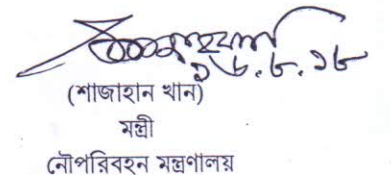 ১৬.৮.১৮
(শাজাহান খান)
মন্ত্রী
নৌপরিবহন মন্ত্রণালয়